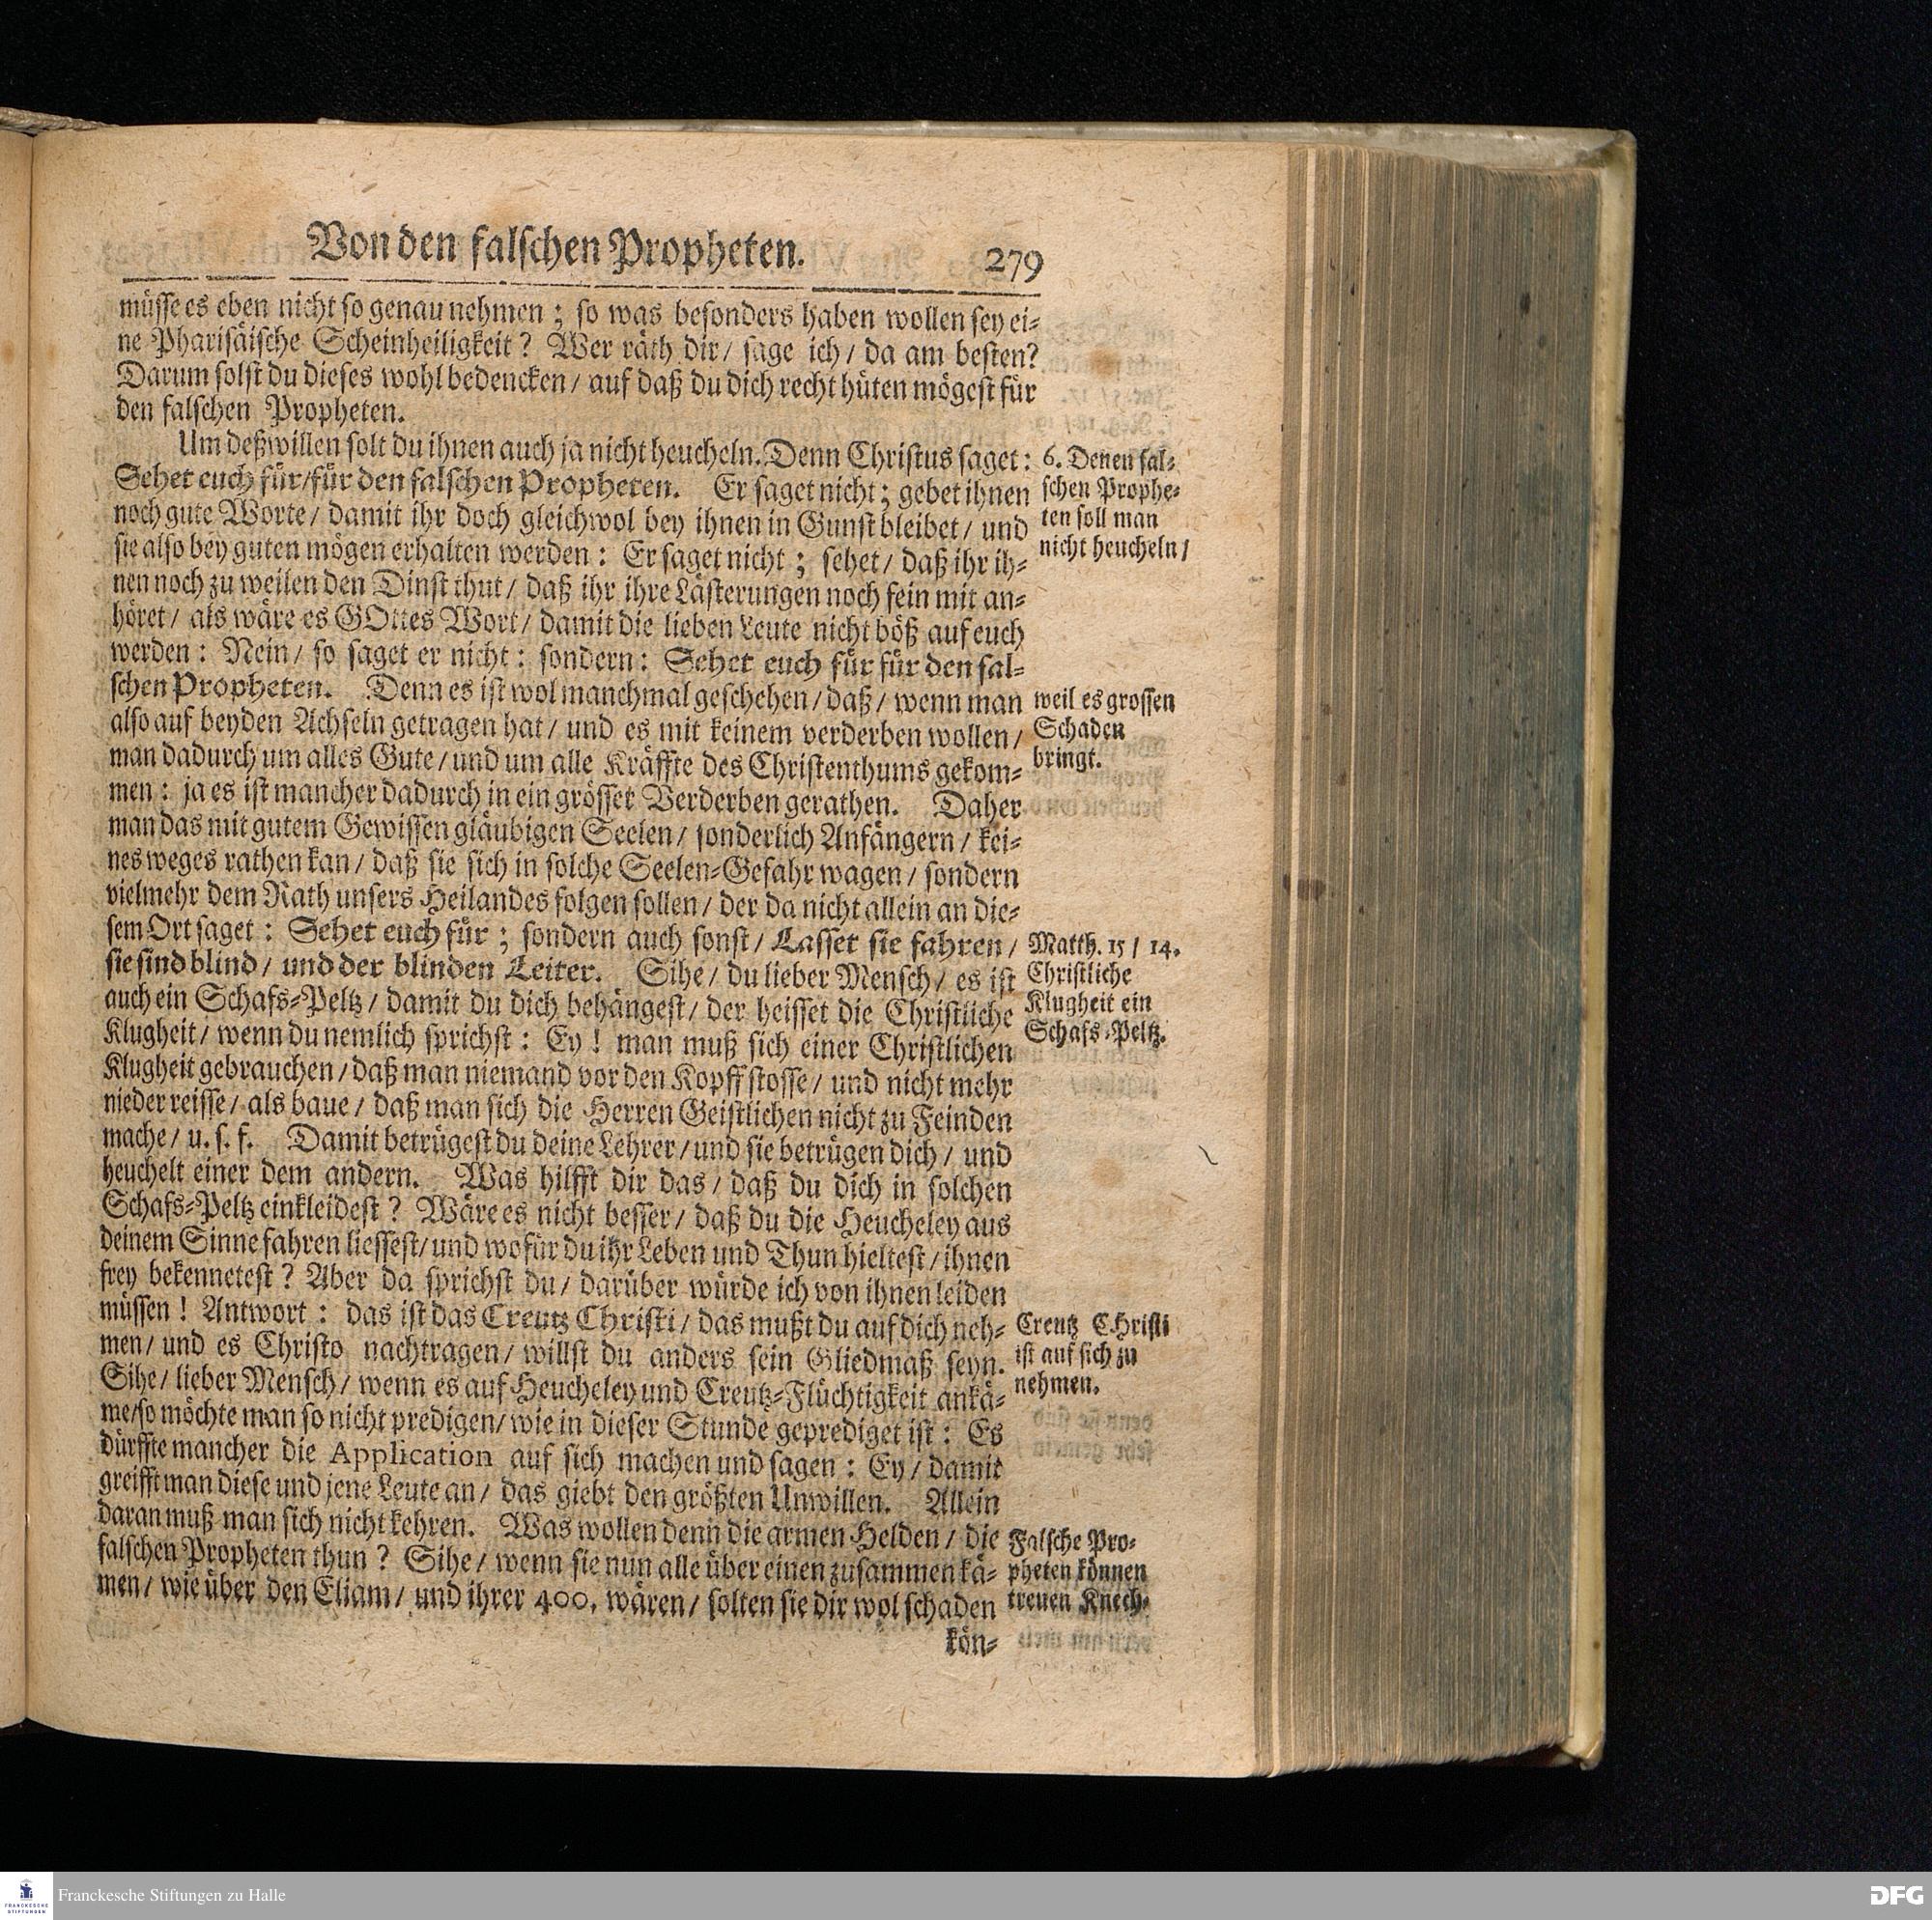 Von den falschen Propheten. 279
müsse es eben nicht so genau nehmen; so was besonders haben wollen sey ei-
ne Pharisäische Scheinheiligkeit? Wer räth dir/ sage ich/ da am besten?
Darum solst du dieses wohl bedencken/ auf daß du dich recht hüten mögest für
den falschen Propheten.
Um deßwillen solt du ihnen auch ja nicht heucheln. Denn Christus saget:
Sehet euch für/für den falschen Propheten. Er saget nicht; gebet ihnen
noch gute Worte/ damit ihr doch gleichwol bey ihnen in Gunst bleibet/ und
sie also bey guten mögen erhalten werden: Er saget nicht; sehet/ daß ihr ih-
nen noch zu weilen den Dinst thut/ daß ihr ihre Lästerungen noch fein mit an-
höret/ als wäre es GOttes Wort/ damit die lieben Leute nicht böß auf euch
werden: Nein/ so saget er nicht: sondern: Sehet euch für für den fal-
schen Propheten. Denn es ist wol manchmal geschehen/ daß/ wenn man
also auf beyden Achseln getragen hat/ und es mit keinem verderben wollen/
man dadurch um alles Gute/ und um alle Kräffte des Christenthums gekom-
men: ja es ist mancher dadurch in ein grösser Verderben gerathen. Daher
man das mit gutem Gewissen gläubigen Seelen/ sonderlich Anfängern/ kei-
nes weges rathen kan/ daß sie sich in solche Seelen-Gefahr wagen/ sondern
vielmehr dem Rath unsers Heilandes folgen sollen/ der da nicht allein an die-
sem Ort saget: Sehet euch für; sondern auch sonst/ Lasset sie fahren/
sie sind blind/ und der blinden Leiter. Sihe/ du lieber Mensch/ es ist
auch ein Schafs-Peltz/ damit du dich behängest/ der heisset die Christliche
Klugheit/ wenn du nemlich sprichst: Ey! man muß sich einer Christlichen
Klugheit gebrauchen/ daß man niemand vor den Kopff stosse/ und nicht mehr
nieder reisse/ als baue/ daß man sich die Herren Geistlichen nicht zu Feinden
mache/ u. s. f. Damit betrügest du deine Lehrer/ und sie betrügen dich/ und
heuchelt einer dem andern. Was hilfft dir das/ daß du dich in solchen
Schafs-Peltz einkleidest? Wäre es nicht besser/ daß du die Heucheley aus
deinem Sinne fahren liessest/ und wofür du ihr Leben und Thun hieltest/ ihnen
frey bekennetest? Aber da sprichst du/ darüber würde ich von ihnen leiden
müssen! Antwort: das ist das Creutz Christi/ das mußt du auf dich neh-
men/ und es Christo nachtragen/ willst du anders sein Gliedmaß seyn.
Sihe/ lieber Mensch/ wenn es auf Heucheley und Creutz-Flüchtigkeit ankä-
me/so möchte man so nicht predigen/ wie in dieser Stunde geprediget ist: Es
dürffte mancher die Application auf sich machen und sagen: Ey/ damit
greifft man diese und jene Leute an/ das giebt den größten Unwillen. Allein
daran muß man sich nicht kehren. Was wollen denn die armen Helden/ die
falschen Propheten thun? Sihe/ wenn sie nun alle über einen zusammen kä-
men/ wie über den Eliam/ und ihrer 400. wären/ solten sie dir wol schaden
kön-
6. Denen fal-
schen Prophe-
ten soll man
nicht heucheln/
weil es grossen
Schaden
bringt.
Matth. 15/ 14.
Christliche
Klugheit ein
Schafs-Peltz.
Creutz CHristi
ist auf sich zu
nehmen.
Falsche Pro-
pheten können
treuen Knech-
FRANCKESCHE
STIFTUNGEN
Franckesche Stiftungen zu Halle
DFG